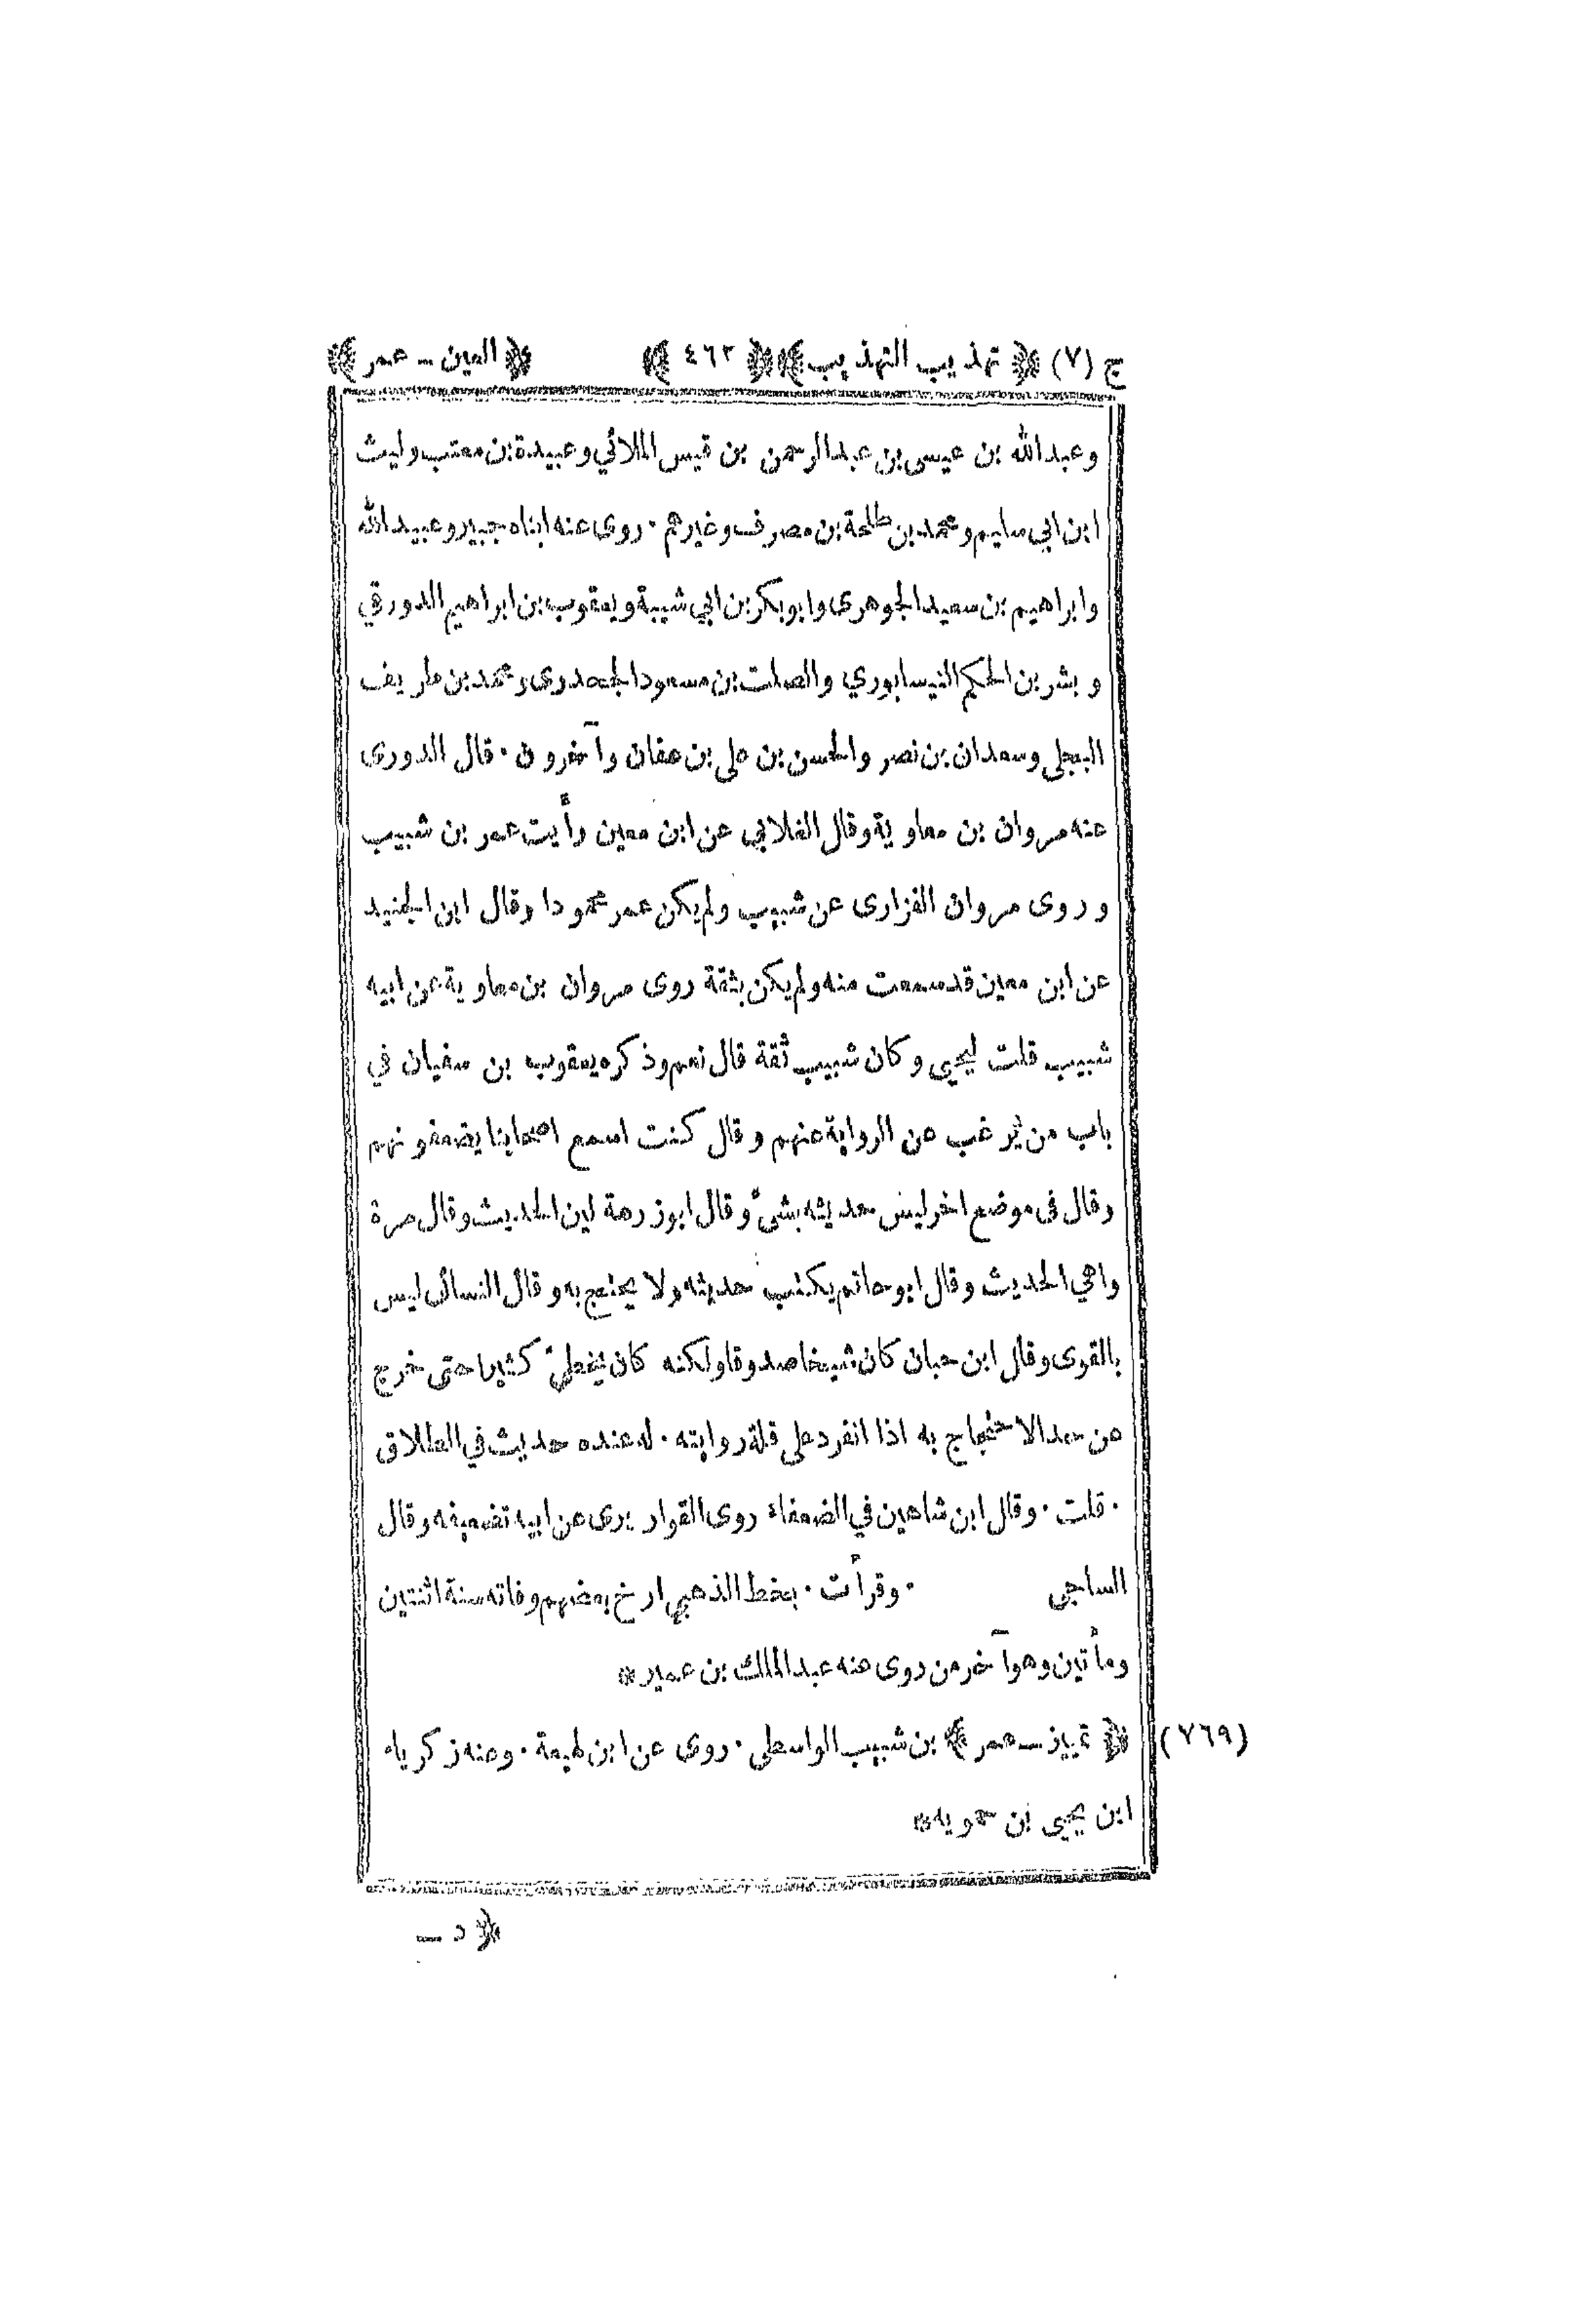 ج (٧) ﴿ تهذيب التهذيب ﴾﴿ ٤٦٢ ﴾ ﴿ العين – عمر ﴾
وعبدالله بن عيسى بن عبدالرحمن بن قيس الملائي وعبيدة بن معتب وليث
ابن ابي سليم ومحمد بن طلحة بن مصرف وغيرهم ٠ روى عنه ابناه جبير وعبيدالله
وابراهيم بن سعيد الجوهرى وابوبكر بن ابي شيبة ويعقوب بن ابراهيم الدورقي
وبشر بن الحكم النيسابوري والصلت بن مسعود الجحدرى ومحمد بن طريف
البجلى وسعدان بن نصر والحسن بن على بن عفان وآخرون ٠ قال الدورى
عنه مروان بن معاوية وقال الغلابي عن ابن معين رأيت عمر بن شبيب
وروى مروان الفزارى عن شبيب ولم يكن عمر محمودا وقال ابن الجنيد
عن ابن معين قد سمعت منه ولم يكن بثقة روى مروان بن معاوية عن ابيه
شبيب قلت ليحيى وكان شبيب ثقة قال نعم وذكره يعقوب بن سفيان في
باب من يرغب عن الرواية عنهم وقال كنت اسمع اصحابنا يضعفونهم
وقال فى موضع اخر ليس حديثه بشئ وقال ابوزرعة لين الحديث وقال مرة
واهي الحديث وقال ابو حاتم يكتب حديثه ولا يحتج به وقال النسائى ليس
بالقوى وقال ابن حبان كان شيخا صدوقا ولكنه كان يخطئ كثيرا حتى خرج
عن حد الاحتجاج به اذا انفرد على قلة روايته ٠ له عنده حديث في الطلاق
٠ قلت ٠ وقال ابن شاهين في الضعفاء روى القواريرى عن ابيه تضعيفه وقال
الساجى ٠ وقرأت ٠ بخط الذهبي ارخ بعضهم وفاته سنة اثنتين
ومأتين وهو آخر من روى عنه عبدالملك بن عمير *
(٧٦٩) ﴿ تمييز – عمر ﴾ بن شبيب الواسطى ٠ روى عن ابن لهيعة ٠ وعنه زكرياء
ابن يحيى بن حمويه *
﴿ د –